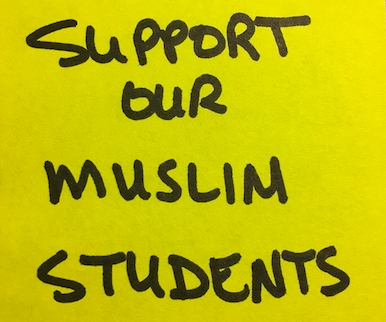 SUPPORT
OUR
MUSLIM
STUDENTS